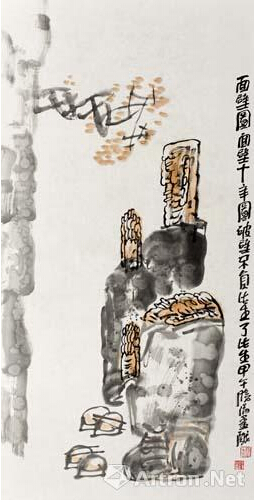 面壁圖面壁十年圖破壁不負此生了此生甲午
Artron.Net